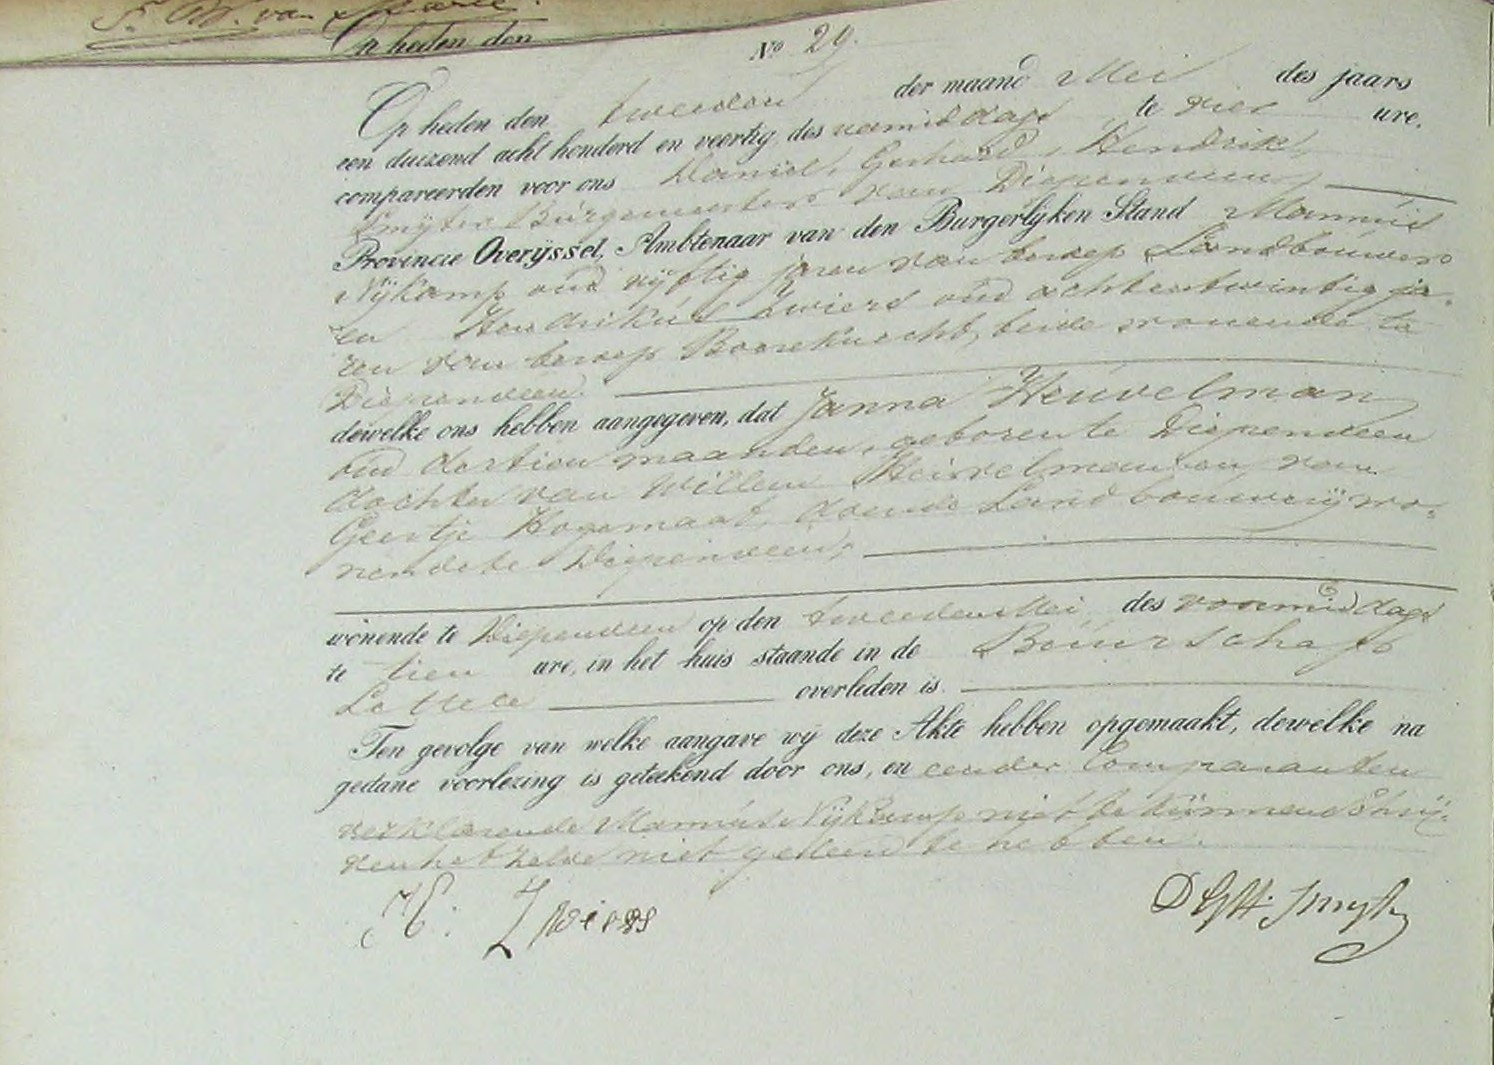 F. W. van Marle.
Op heden den
No 29.
Op heden den tweeden der maand Mei des jaars
een duizend acht honderd en veertig, des namiddags te vier ure,
compareerden voor ons Daniël, Gerhard, Hendrik,
Smijter Burgemeester van Diepenveen,
Provincie Overijssel, Ambtenaar van den Burgerlijken Stand Mannus
Nijkamp oud vijftig jaren van beroep Landbouwer
en Hendrikus Zwiers oud achtentwintig ja-
ren van beroep Boereknecht, beide wonende te
Diepenveen.
dewelke ons hebben aangegeven, dat Janna Heuvelman
oud dertien maanden, geboren te Diepenveen
dochter van Willem Heuvelman en van
Geertje Hogemaat, doende Landbouwerij wo-
nende te Diepenveen,
wonende te Diepenveen op den tweeden Mei des voormiddags
te tien ure, in het huis staande in de Bouurschap
Lettele overleden is.
Ten gevolge van welke aangave wij deze Akte hebben opgemaakt, dewelke na
gedane voorlezing is geteekend door ons, en een der Comparanten
verklarende Mannus Nijkamp niet te kunnen Schrij-
ven het zelve niet geleerd te hebben.
H. Zwiers
D G H. Smijter